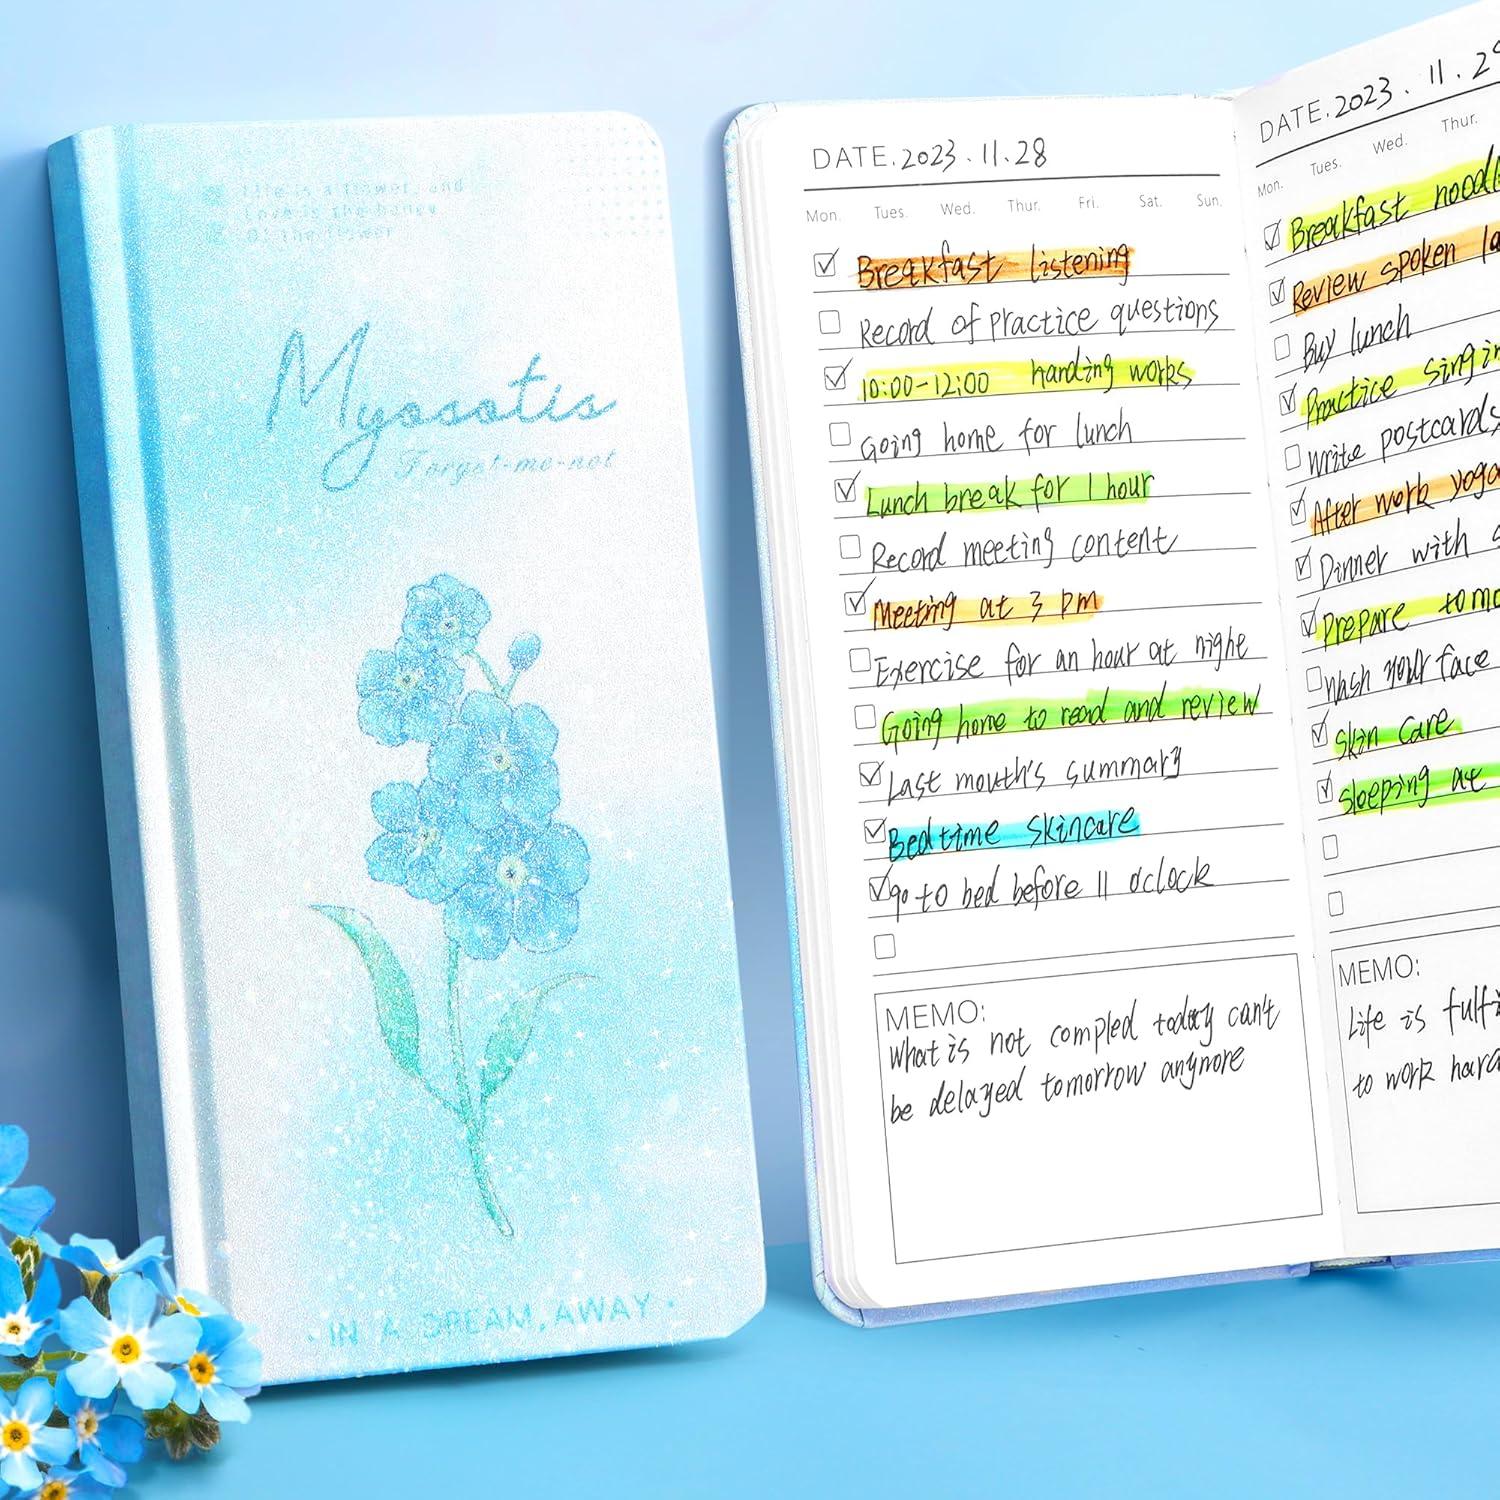 Life is a flower, and
Love is the honey
Of the flower
Myosotis
Forget-me-not
· IN A DREAM, AWAY ·
DATE. 2023.11.28
Mon. Tues. Wed. Thur. Fri. Sat. Sun.
Breakfast listening
Record of practice questions
10:00-12:00 handing works
Going home for lunch
Lunch break for 1 hour
Record meeting content
Meeting at 3 pm
Exercise for an hour at night
Going home to read and review
Last mouth's summary
Bedtime skincare
go to bed before 11 oclock
MEMO:
What is not compled today can't
be delayed tomorrow anymore
DATE. 2023.11.29
Mon. Tues. Wed. Thur.
Breakfast noodle
Review spoken la
Buy lunch
Practice singin
Write postcards
After work yoga
Dinner with
Prepare tomo
Wash your face
Skin care
Sleeping at
MEMO:
Life is fulfi
to work hard